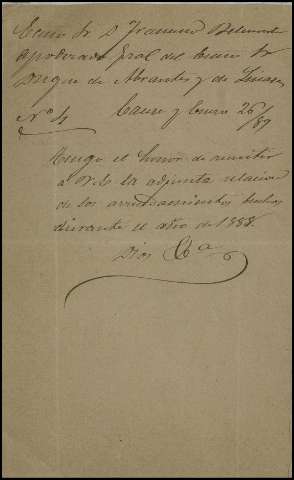 Excmo Sr D Francisco Belmonte
apoderado Gral del Excmo Sr
Duque de Abrantes y de Linares
Nº 4 Enero 26/89
Tengo el honor de remitir
a V. E. la adjunta relacion
de los arrendamientos hechos
durante el año de 1888.
Dios &ª